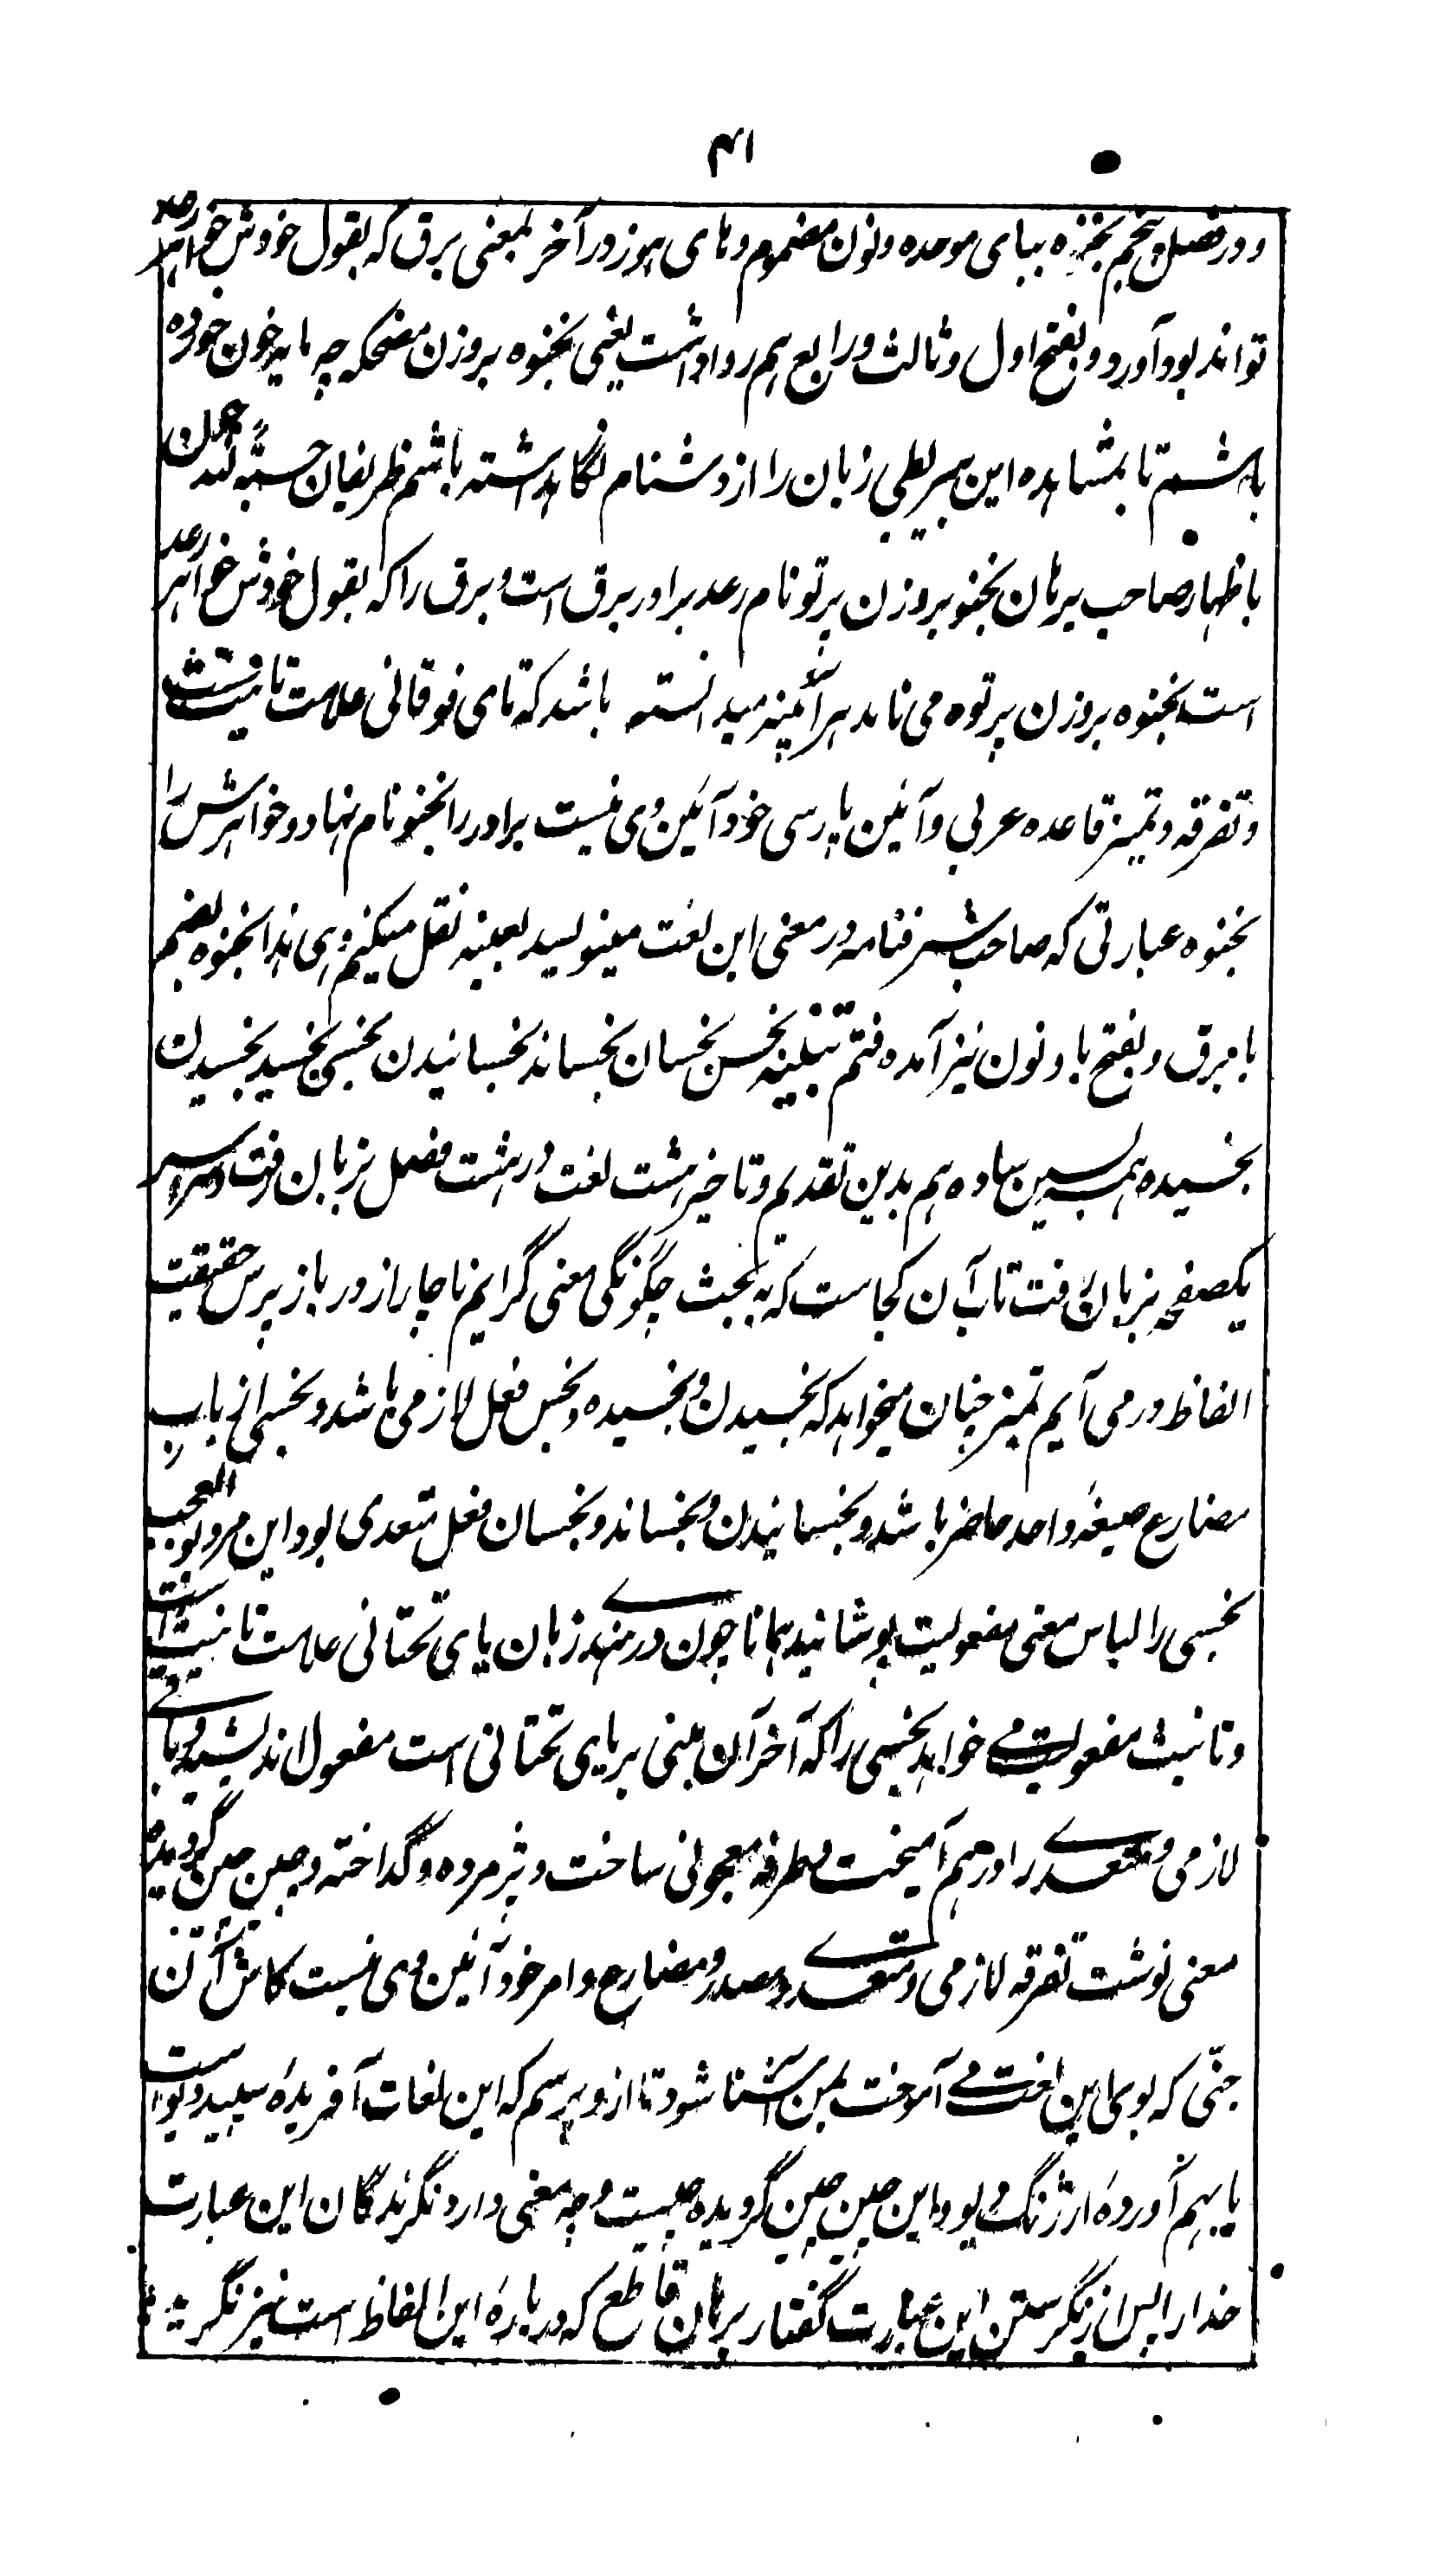 ۴۱
و در فصل پنجم بخنوه ببای موحده و نون مضموم و های هوز در آخر بمعنی برق که بقول خودش خواهر رعد
تواند بود آورد و بفتح اول و ثالث و رابع هم روا داشت یعنی بخنوه بروزن مضحکه چه مایه خون خورده
باشم تا بمشاهده این بیربطی زبان را از دشنام نگاهداشته باشم ظریفان حسبة لله چون
باظهار صاحب برهان بخنو بروزن پرتو نام رعد برادر برق است و برق را که بقول خودش خواهر رعد
است بخنوه بروزن پرتوه می نامد هر آئینه میدانسته باشد که تای فوقانی علامت تانیث است
و تفرقه و تمیز قاعده عربی و آئین پارسی خود آئین وی نیست برادر را بخنو نام نهاد و خواهرش را
بخنوه عبارتی که صاحب شرفنامه در معنی این لغت مینویسد بعینه نقل میکنم وهی هذا بخنوه بضم
با برق و بفتح با و نون نیز آمده فتم تنبیه بخس بخسان بخساند بخسانیدن بخسی بخسید بخسیدن
بخسیده همه بسین ساده هم بدین تقدیم و تاخیر هشت لغت در هشت فصل بزبان رفت و سراسر
یکصفحه بزبان رفت تاب آن کجاست که به بحث چگونگی معنی گرایم ناچار از در باز پرس حقیقت
الفاظ در می آیم تمیز چنان میخواهد که بخسیدن و بخسیده و بخس فعل لازمی باشد و بخسی از باب
مضارع صیغهٔ واحد حاضر باشد و بخسانیدن و بخساند و بخسان فعل متعدی بود این مرد بوالعجب
بخسی را لباس معنی مفعولیت پوشانید همانا چون در هندی زبان یای تحتانی علامت تانیث است
و تانیث مفعولیت می خواهد بخسی را که آخر آن مبنی بر یای تحتانی است مفعول اندیشید و باقی
لازمی و متعدی را در هم آمیخت و طرفه معجونی ساخت و پژمرده و گداخته و چین چین گردیده
معنی نوشت تفرقه لازمی و متعدی و مصدر و مضارع و امر خود آئین وی نیست کاش آن تن
جنّی که بوی این لغت می آموخت بمن آشنا شود تا از و پرسم که این لغات آفریدهٔ سپید دیو است
یا بهم آوردهٔ ارژنگ دیو و این چین چین گردیده چیست و چه معنی دارد نگرندگان این عبارت
خدا را پس از نگرستن این عبارت گفتار برهان قاطع که دربارهٔ این الفاظ است نیز نگرند تا